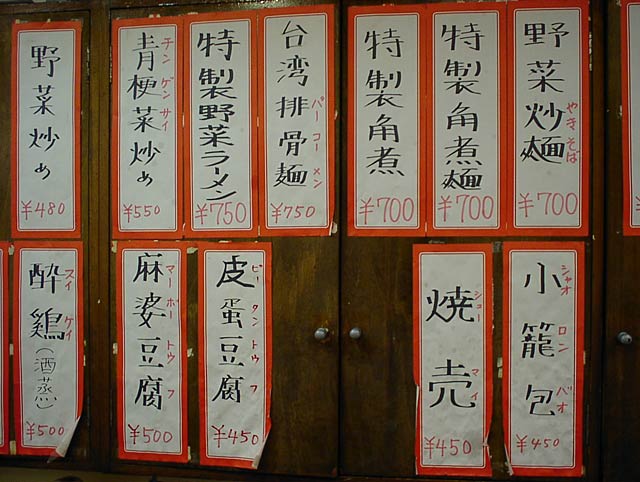 野菜炒麺
やきそば
¥700
特製角煮麺
¥700
特製角煮
¥700
台湾排骨麺
パーコーメン
¥750
特製野菜ラーメン
¥750
青梗菜炒め
チンゲンサイ
¥550
野菜炒め
¥480
小籠包
シャオロンパオ
¥450
焼売
シューマイ
¥450
皮蛋豆腐
ピータントウフ
¥450
麻婆豆腐
マーボートウフ
¥500
酔鶏(酒蒸)
スイケイ
¥500